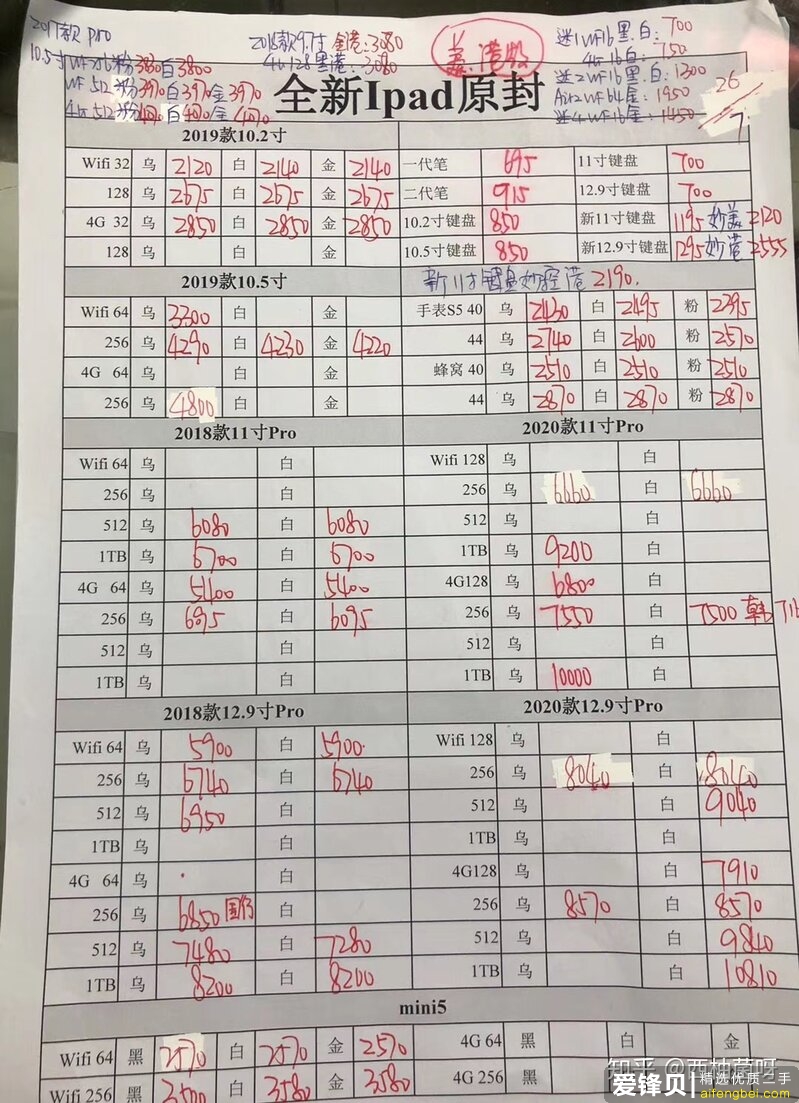 2017款 pro
2018款9.7寸 金港:3080
4G 128黑港:3080
美.港版
迷1 WF16黑.白:700
4G 16白:750
迷2 WF16黑.白:1300
Air2 WF64金:1950
迷4 WF16金:1450
26/7
10.5寸 WF256粉3880白3800
WF 512粉3970白3970金3970
4G 512粉4070白4070金4070
全新Ipad原封
2019款10.2寸
Wifi 32 乌 2120 白 2140 金 2140 一代笔 695 11寸键盘 700
128 乌 2675 白 2675 金 2675 二代笔 915 12.9寸键盘 700
4G 32 乌 2850 白 2850 金 2850 10.2寸键盘 850 新11寸键盘 1195 妙美2120
128 乌 白 金 10.5寸键盘 850 新12.9寸键盘 1295 妙港2555
2019款10.5寸 新11寸键盘妙控港2190.
Wifi 64 乌 3300 白 金 手表S5 40 乌 2430 白 2495 粉 2395
256 乌 4290 白 4230 金 4220 44 乌 2740 白 2600 粉 2570
4G 64 乌 白 金 蜂窝 40 乌 2510 白 2510 粉 2510
256 乌 4800 白 金 44 乌 2870 白 2870 粉 2870
2018款11寸Pro 2020款11寸Pro
Wifi 64 乌 白 Wifi 128 乌 白
256 乌 白 256 乌 6660 白 6660
512 乌 6080 白 6080 512 乌 白
1TB 乌 6700 白 6700 1TB 乌 9200 白
4G 64 乌 5400 白 5400 4G128 乌 6800 白
256 乌 6095 白 6095 256 乌 7550 白 7500 韩
512 乌 白 512 乌 白
1TB 乌 白 1TB 乌 10000 白
2018款12.9寸Pro 2020款12.9寸Pro
Wifi 64 乌 5900 白 5900 Wifi 128 乌 白
256 乌 6740 白 6740 256 乌 8040 白 8040
512 乌 6950 白 512 乌 白 9040
1TB 乌 白 1TB 乌 白
4G 64 乌 白 4G128 乌 白 7910
256 乌 6850 国行 白 256 乌 8570 白 8570
512 乌 7480 白 7280 512 乌 白 9840
1TB 乌 8200 白 8200 1TB 乌 白 10810
mini5
Wifi 64 黑 2570 白 2570 金 2570 4G 64 黑 白 金
Wifi 256 黑 3500 白 3580 金 3580 4G 256 黑
知乎 @西柚茵呀
爱锋贝 精选优质二手
aifengbei.com